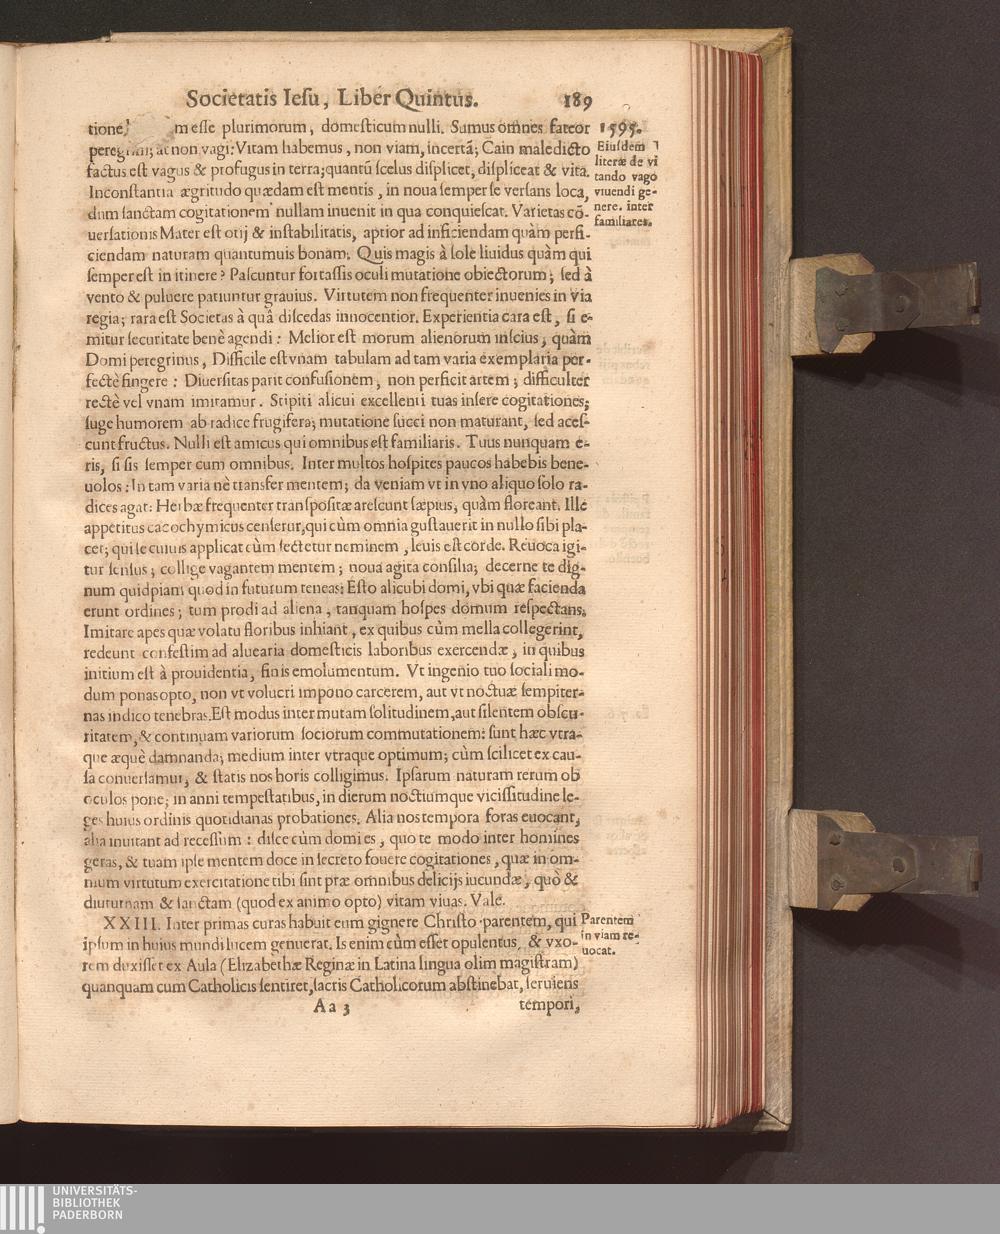 Societatis Iesu, Liber Quintus. 189
tione m esse plurimorum, domesticum nulli. Sumus omnes fateor
at non vagi: Vitam habemus, non viam, incertā; Cain maledicto
factus est vagus & profugus in terra; quantū scelus displicet, displiceat & vita.
Inconstantia ægritudo quædam est mentis, in noua semper se versans loca,
dum sanctam cogitationem nullam inuenit in qua conquiescat. Varietas cō-
uersationis Mater est otij & instabilitatis, aptior ad inficiendam quàm perfi-
ciendam naturam quantumuis bonam. Quis magis à sole liuidus quàm qui
semper est in itinere? Pascuntur fortassis oculi mutatione obiectorum; sed à
vento & puluere patiuntur grauius. Virtutem non frequenter inuenies in via
regia; rara est Societas à quâ discedas innocentior. Experientia cara est, si e-
mitur securitate benè agendi: Melior est morum alienorum inscius, quàm
Domi peregrinus, Difficile est vnam tabulam ad tam varia exemplaria per-
fectè fingere: Diuersitas parit confusionem, non perficit artem; difficulter
rectè vel vnam imitamur. Stipiti alicui excellenti tuas insere cogitationes;
suge humorem ab radice frugifera; mutatione succi non maturant, sed aces-
cunt fructus. Nulli est amicus qui omnibus est familiaris. Tuus nunquam e-
ris, si sis semper cum omnibus. Inter multos hospites paucos habebis bene-
uolos: In tam varia nè transfer mentem; da veniam vt in vno aliquo solo ra-
dices agat: Herbæ frequenter transpositæ arescunt sæpius, quàm floreant. Ille
appetitus cacochymicus censetur, qui cùm omnia gustauerit in nullo sibi pla-
cet; qui se cuiuis applicat cùm sectetur neminem, leuis est corde. Reuoca igi-
tur sensus; collige vagantem mentem; noua agita consilia; decerne te dig-
num quidpiam quod in futurum teneas: Esto alicubi domi, vbi quæ facienda
erunt ordines; tum prodi ad aliena, tanquam hospes domum respectans.
Imitare apes quæ volatu floribus inhiant, ex quibus cùm mella collegerint,
redeunt confestim ad aluearia domesticis laboribus exercendæ, in quibus
initium est à prouidentia, finis emolumentum. Vt ingenio tuo sociali mo-
dum ponas opto, non vt volucri impono carcerem, aut vt noctuæ sempiter-
nas indico tenebras. Est modus inter mutam solitudinem, aut silentem obscu-
ritatem, & continuam variorum sociorum commutationem: sunt hæc vtra-
que æquè damnanda; medium inter vtraque optimum; cùm scilicet ex cau-
sa conuersamur, & statis nos horis colligimus. Ipsarum naturam rerum ob
oculos pone; in anni tempestatibus, in dierum noctiumque vicissitudine le-
ges huius ordinis quotidianas probationes. Alia nos tempora foras euocant,
alia inuitant ad recessum: disce cùm domi es, quo te modo inter homines
geras, & tuam ipse mentem doce in secreto fouere cogitationes, quæ in om-
nium virtutum exercitatione tibi sint præ omnibus delicijs iucundæ, quò &
diuturnam & sanctam (quod ex animo opto) vitam viuas. Vale.
XXIII. Inter primas curas habuit eum gignere Christo parentem, qui
ipsum in huius mundi lucem genuerat. Is enim cùm esset opulentus, & vxo-
rem duxisset ex Aula (Elizabethæ Reginæ in Latina lingua olim magistram)
quanquam cum Catholicis sentiret, sacris Catholicorum abstinebat, seruiens
Aa 3 tempori,
1595.
Eiusdem
literæ de vi
tando vago
viuendi ge-
nere. inter
familiares.
Parentem
in viam re-
uocat.
UNIVERSITÄTS-
BIBLIOTHEK
PADERBORN